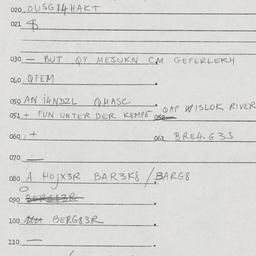 020 OUSG14HAKT
021 $
030 — BUT QY MESUKN CM GEFERLEKH
040 QFEM
050 AN I4NDZL QMASC
051 + FUN UNTER DER KEMPE QAP WISLOK RIVER
052
060 + 061 BRE4.G3S
070 —
080 A HOJX3R BAR3K8 / BARG8
090 BERG83R
100 BERG83R
110 —